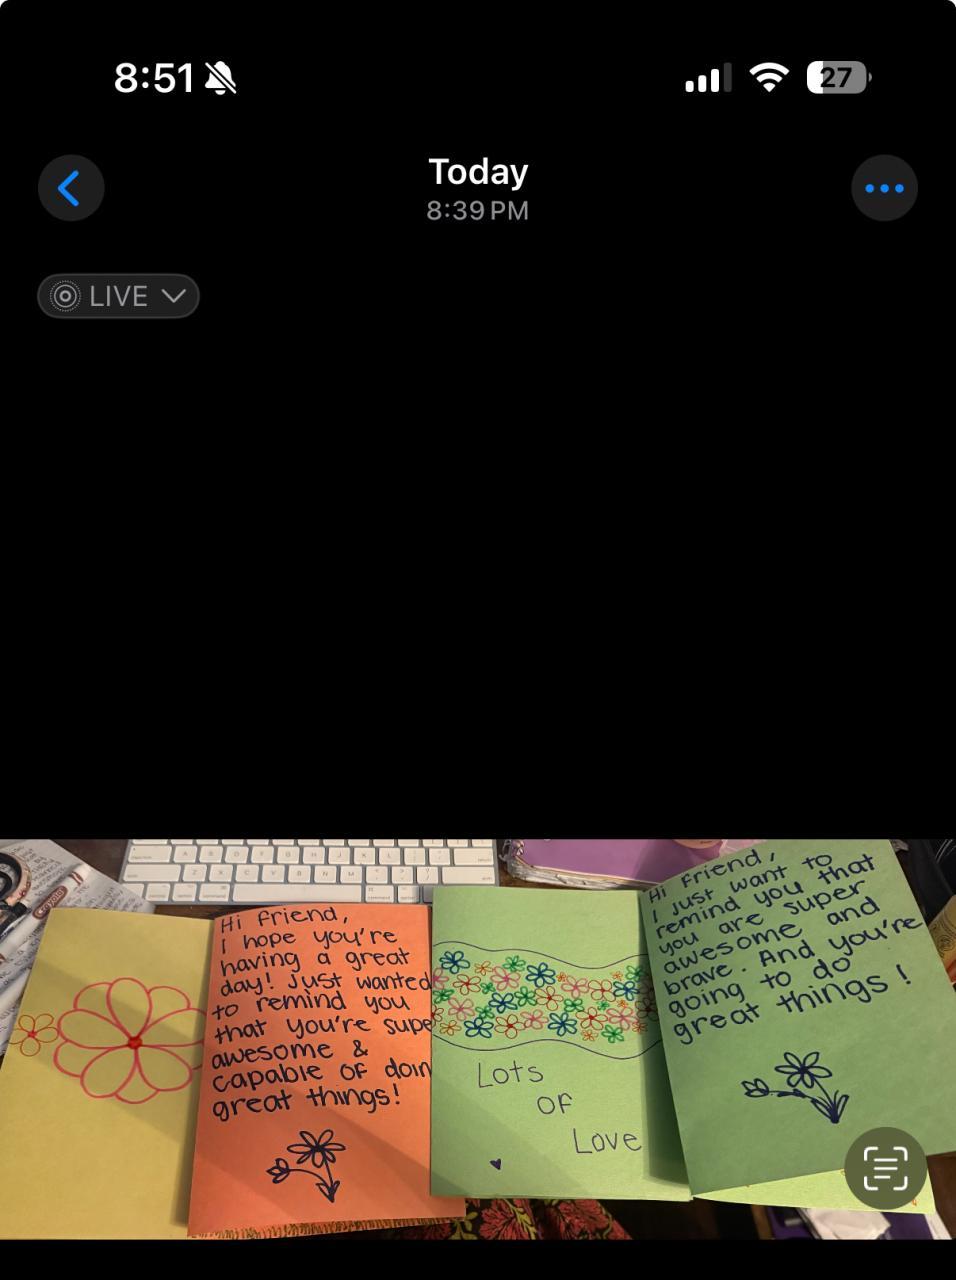 8:51
27
Today
8:39 PM
LIVE
Hi Friend,
I hope you're
having a great
day! Just wanted
to remind you
that you're supe
awesome &
capable of doin
great things!
Lots
of
Love
Hi Friend,
I just want to
remind you that
you are super
awesome and
brave. And you're
going to do
great things!
Crayola